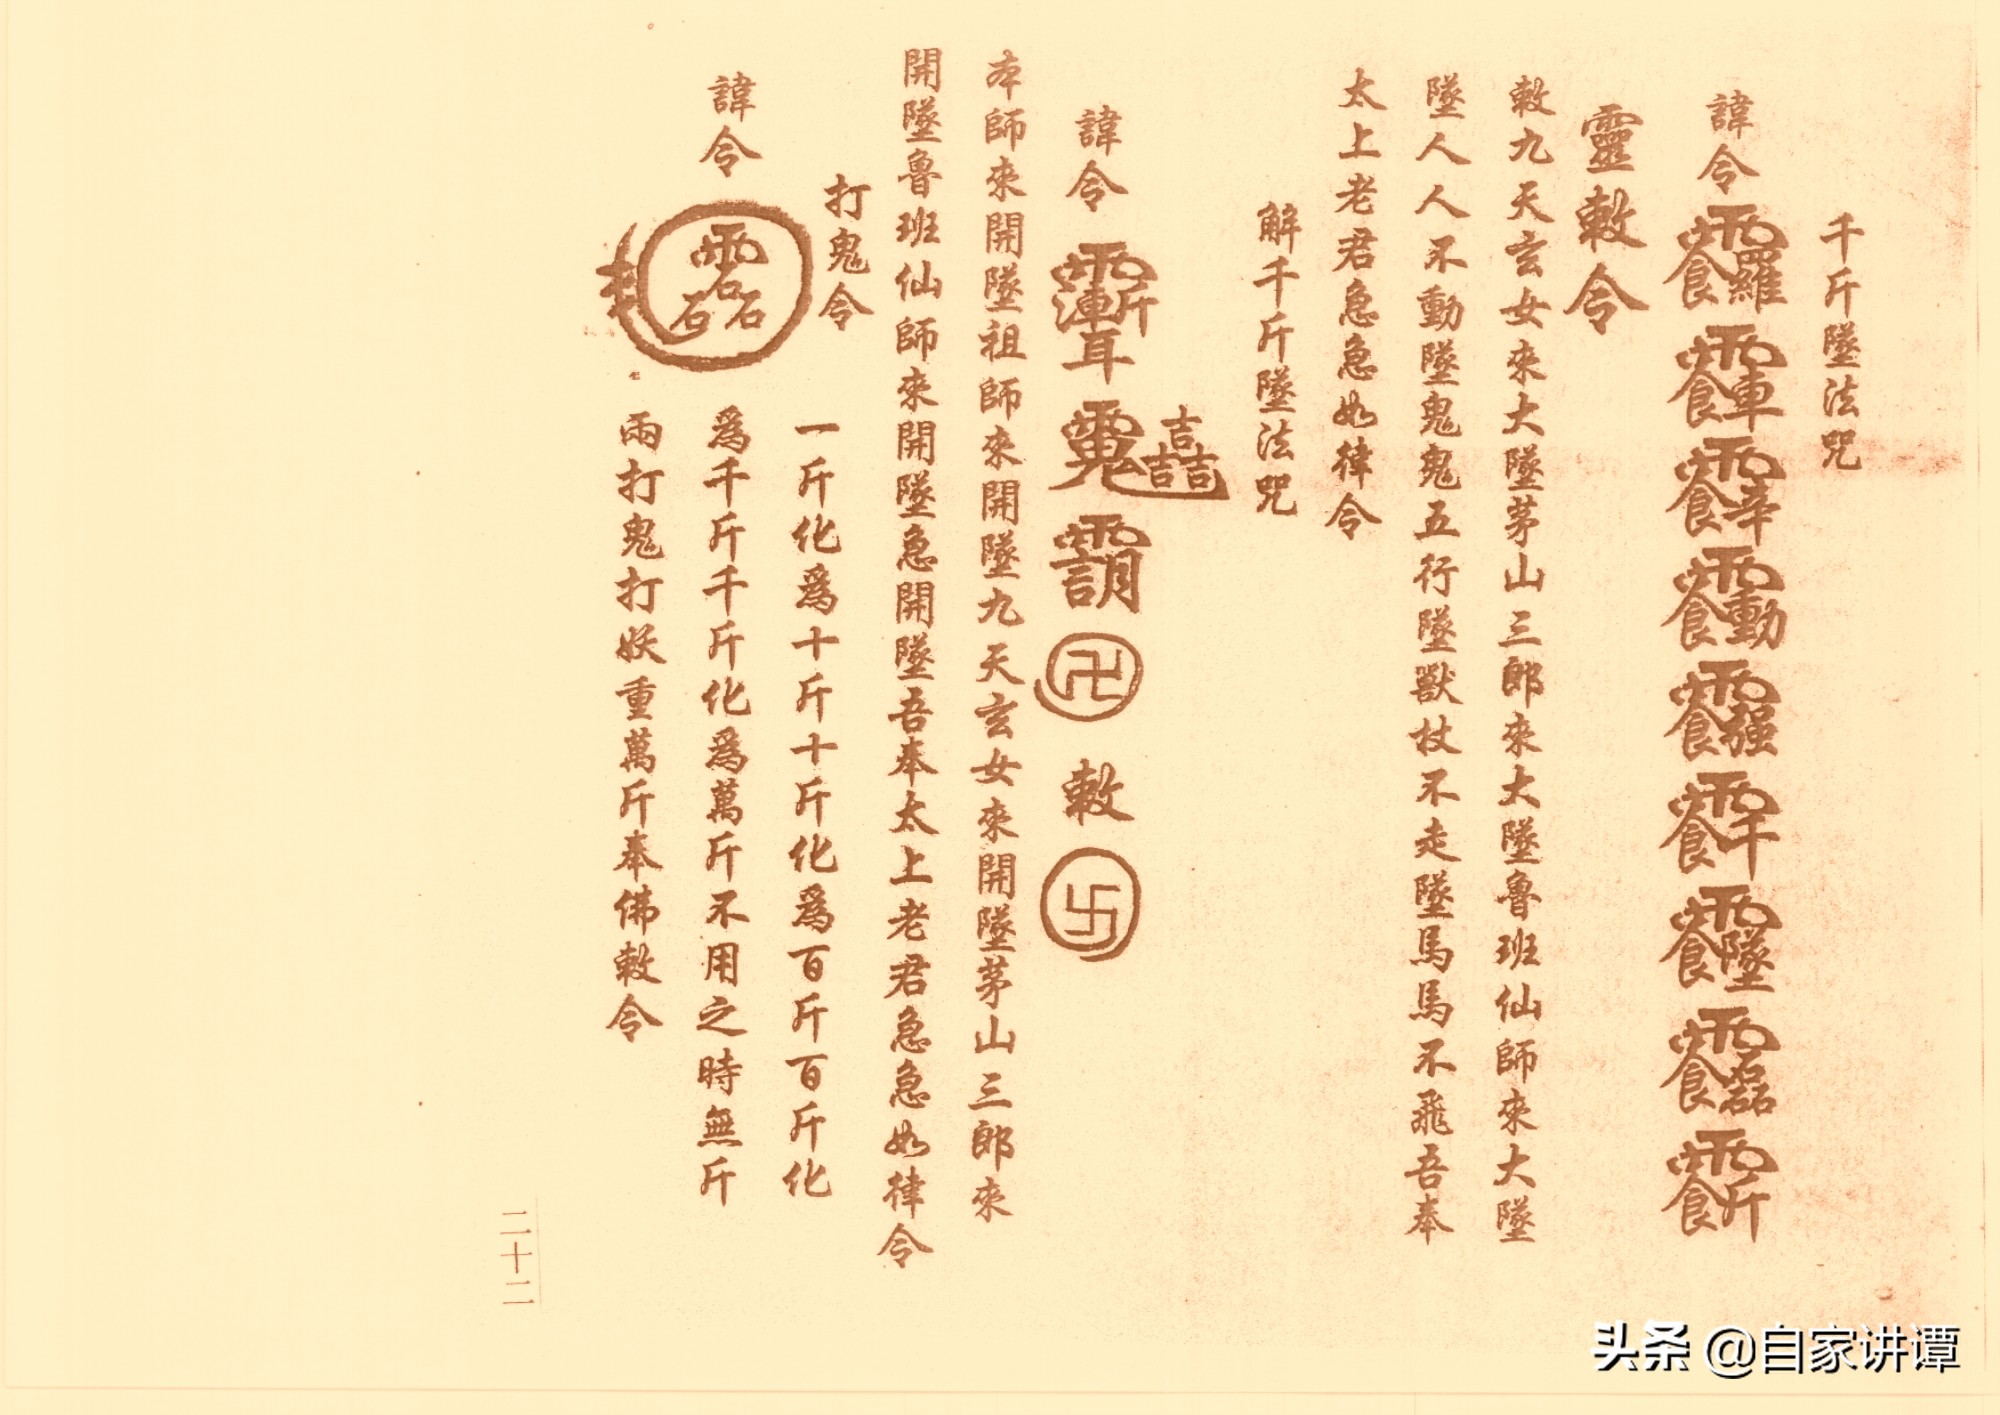 千斤墜法咒
諱令
靈敕令
敕九天玄女來大墜茅山三郎來大墜魯班仙師來大墜
墜人人不動墜鬼鬼五行墜獸杖不走墜馬馬不飛吾奉
太上老君急急如律令
解千斤墜法咒
諱令
卍 敕 卐
本師來開墜祖師來開墜九天玄女來開墜茅山三郎來
開墜魯班仙師來開墜急開墜吾奉太上老君急急如律令
打鬼令
諱令
一斤化為十斤十斤化為百斤百斤化
為千斤千斤化為萬斤不用之時無斤
兩打鬼打妖重萬斤奉佛敕令
二十二
头条 @自家讲谭